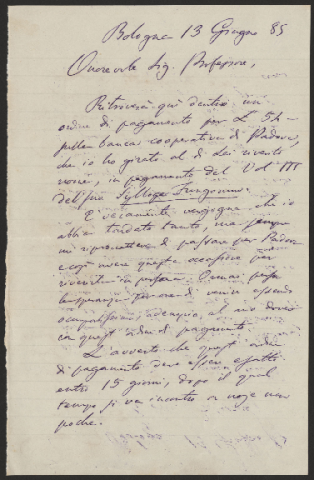 Bologna 13 Giugno 85
Onorevole Sig. Professore,
Ritroverà qui dentro un
ordine di pagamento per L 54
sulla banca cooperativa di Padova,
che io ho girato al di Lei riverito
nome, in pagamento del Vol III
dell'sua Sylloge Fungorum.
È veramente vergogna che io
abbia tardato tanto, ma sempre
mi riprometteva di passare per Padova
così avere questa occasione per
riverirla in persona. Omai
la speranza di venir essendo
occupatissimo,
in quest'ordine di pagamento.
L'avverto che quest'ordine
di pagamento deve essere esatto
entro 15 giorni, dopo il qual
tempo si va incontro a noje non
poche.